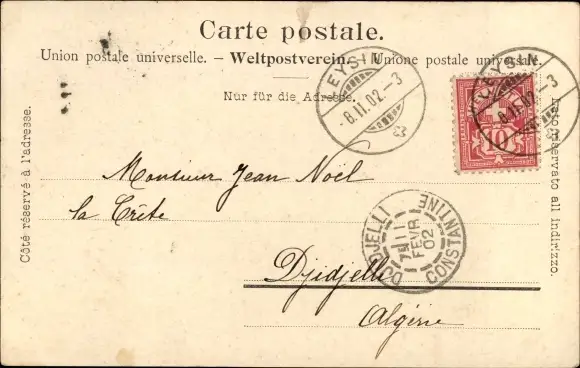 Carte postale.
Union postale universelle. – Weltpostverein. – Unione postale universale.
Nur für die Adresse.
LEYSIN
-8.II.02.-3
LEYSIN
-8.II.02.-3
10
Côté réservé à l'adresse.
Lato riservato all indirizzo.
Monsieur Jean Noël
la Crête
DJIDJELLI
11
FEVR
02
CONSTANTINE
Djidjelli
Algérie